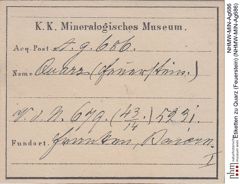 K. K. Mineralogisches Museum.
Acq. Post A. g. 686.
Name Quarz (Feuerstein.)
V. d. N. 679. (43/14) 5291.
Fundort: Franken, Baiern.
I
NHMW-MIN-Ag686
Etiketten zu Quarz (Feuerstein)
(NHMW-MIN-Ag686)
nhm